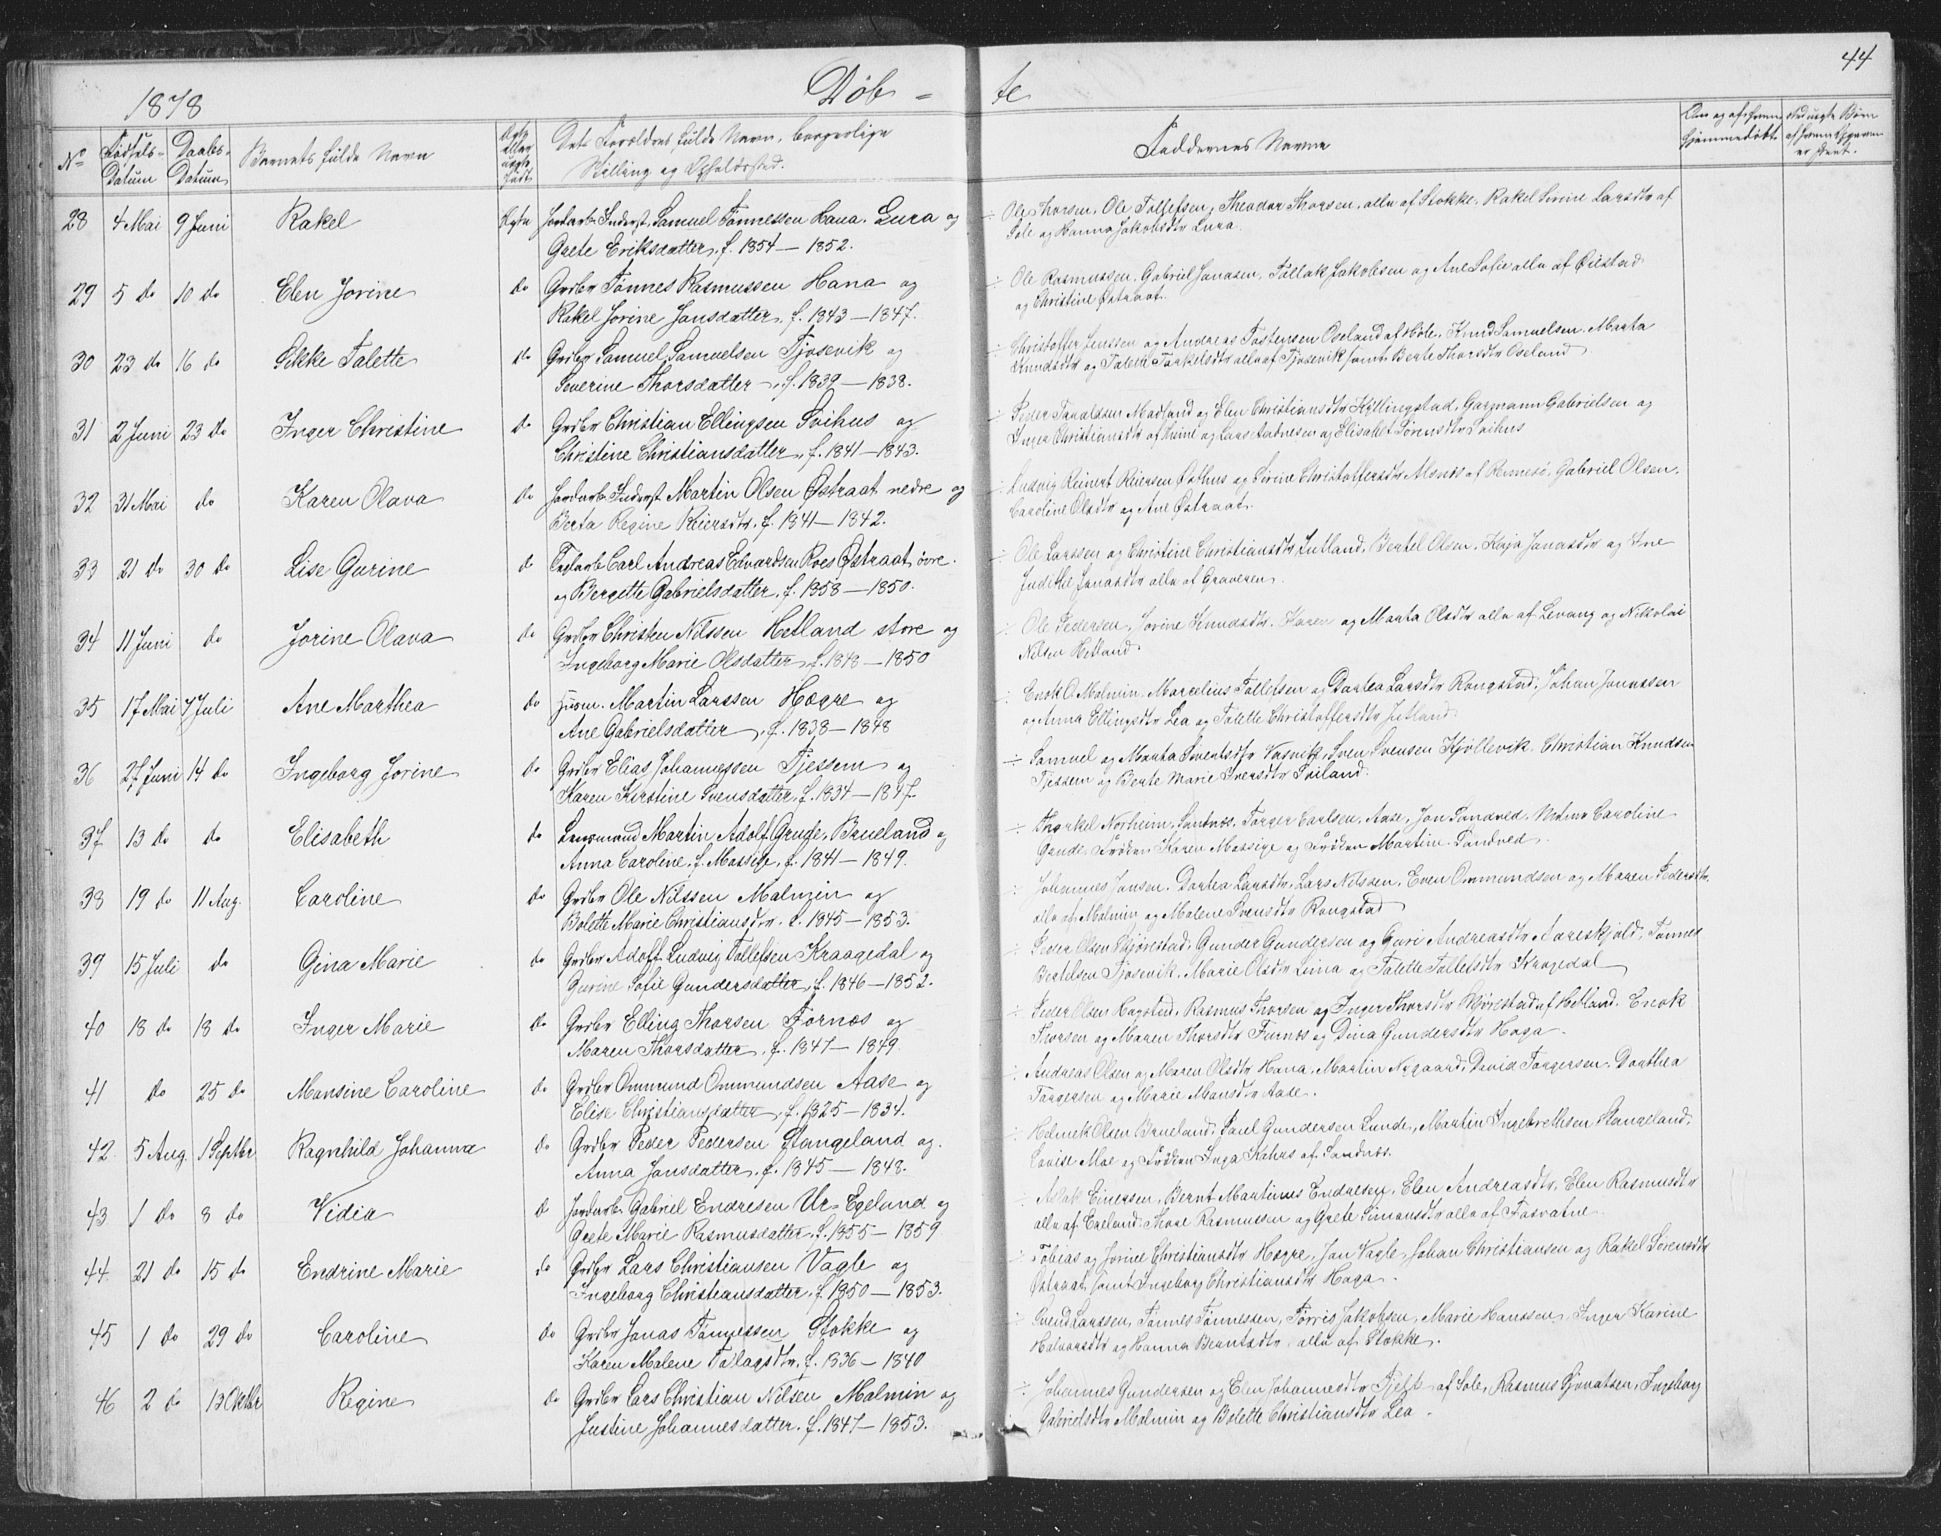 44
1878
Døb - te
No
Fødsels-Datum
Daabs-Datum
Barnets fulde Navn
Ægte eller uægte født
Det Forældres fulde Navn, borgerlige
Stilling og Opholdssted.
Faddernes Navne
Om og af hvem hjemmedøbt
28 4 Mai 9 Juni Rakel Ægte Jordarb. Inderst. Samuel Tønnessen Hana. Lura og
Grete Eriksdatter, f. 1854 – 1852.
÷ Ole Thorsen, Ole Tollefsen, Theodor Thorsen, alle af Stokke, Rakel Serine Larsdtr af
Sole og Hanna Jakobsdtr Lura.
29 5 do 10 do Elen Jorine do Grdbr Tønnes Rasmussen Hana og
Rakel Jorine Jonsdatter, f. 1843 – 1847.
÷ Ole Rasmussen, Gabriel Jonasen, Tollak Jakobsen og Ane Sofie alle af Øilstad
og Christine Østraat.
30 23 do 16 do Sikke Talette do Grdbr Samuel Samuelsen Tjosevik og
Severine Thorsdatter, f. 1839 – 1838.
Christoffer Jenssen og Andreas Tostensen Oseland af Høle, Knud Samuelsen, Marta
Knudsdtr og Talette Torkelsdtr alle af Tjosevik samt Berte Thorsdtr Oseland
31 2 Juni 23 do Inger Christine do Grdbr Christian Ellingsen Svihus og
Christine Christiansdatter, f. 1841 – 1843.
÷ Peder Madland og Elen Christiansdtr Kyllingstad, Garmann Gabrielsen og
Inger Christiansdtr af Heine og Lars Andresen og Elisabet Sørensdtr Svihus
32 31 Mai do Karen Olava do Jordarb. Inderst Martin Olsen Østraat nedre og
Berta Regine Reiersdtr. f. 1841 – 1842.
÷ Ludvig Reinert Reiersen Østhus og Serine Christoffersdtr af Rennesø, Gabriel Olsen,
Caroline Olsdtr og Ane Østraat.
33 21 do 30 do Lise Gurine do Carl Andreas Edvardsen Roes Østraat øvre.
og Bergitte Gabrielsdatter, f. 1858 – 1850.
÷ Ole Larssen og Christine Christiansdtr Jutland, Bertel Olsen, Kaja Jonasdtr og Ane
Judithe Jonasdtr alle af Graveren.
34 11 Juni do Jorine Olava do Grdbr Christen Nilssen Hetland store og
Ingeborg Marie Olsdatter, f. 1848 – 1850
÷ Ole Pedersen, Jorine Knudsdtr, Karen og Marta Olsdtr alle af Levang og Nikolai
Nilsen Hetland
35 17 Mai 7 Juli Ane Marthea do Husm. Martin Larssen Høgre og
Ane Gabrielsdatter, f. 1838 – 1848
Enok O. Malmin, Marcelius Tollefsen og Dortea Larsdtr Rongstad, Johan Jonassen
og Anna Ellingsdtr Lea og Talette Christoffersdtr Jutland
36 27 Juni 14 do Ingeborg Jorine do Grdbr Elias Johannessen Tjessem og
Karen Kirstine Svensdatter, f. 1834 – 1847.
÷ Samuel og Marta Sivertsdtr Vasvik, Sven Svensen Kjøllevik, Christian Knudsen
Tjessem og Berte Marie Iversdtr Foiland.
37 13 do do Elisabeth do Lensmand Martin Adolf Grude, Brueland og
Anna Caroline, f. Massige, f. 1841 – 1849.
÷ Thorkel Norheim, Sandnæs, Torger Carlsen, Aase, Jon Sandved, Caroline
Gande, Frøken Karen Massige og Frøken Martine Sandved.
38 19 do 11 Aug. Caroline do Grdbr Ole Nilssen Malmin og
Bolette Marie Christiansdtr, f. 1845 – 1853.
Johannes Jansen, Dortea Larsdtr, Lars Nilssen, Even Ommundsen og Maren Pedersdtr,
alle af Malmin og Malene Svensdtr Rongstad
39 15 Juli do Gina Marie do Grdbr Adolf Ludvig Tollefsen Kraagedal og
Gurine Sofie Gundersdatter, f. 1846 – 1852.
÷ Peder Olsen Skjørestad, Gunder Gundersen og Guri Andreasdtr Aareskjold, Tønnes
Bertelsen Tjosevik, Marie Olsdtr Lima og Talette Tollefsdtr Kraagedal
40 18 do 18 do Inger Marie do Grdbr Elling Thorsen Fornæs og
Maren Thorsdatter, f. 1847 – 1849.
÷ Peder Olsen Ragstad, Rasmus Thorsen og Inger Thorsdtr Skjørestad af Hetland, Enok
Thorsen og Maren Thorsdtr Furnæs og Dina Gundersdtr Haga.
41 do 25 do Mansine Caroline do Grdbr Ommund Ommundsen Aase og
Elise Christiansdatter, f. 1825 – 1834.
÷ Andreas Olsen og Maren Olsdtr Hana, Martin Nygaard, David Torgersen, Dorthea
Torgersen og Marie Monsdtr Aase.
42. 5 Aug. 1 Septbr Ragnhild Johanna do Grdbr Peder Pedersen Stangeland og.
Anna Jonsdatter, f. 1845 – 1848.
÷ Helmik Olsen Brueland, Paul Gundersen Lunde, Martin Ingebrethsen Stangeland,
Lovise Moe og Frøken Inga Kahrs af Sandnæs.
43 1 do 8 do Vidia do Jordarb. Gabriel Endresen Ur-Egeland og
Grete Marie Rasmusdatter, f. 1855 – 1859
÷ Aslak Einersen, Bernt Martinus Endresen, Elen Andreasdtr, Elen Rasmusdtr
alle af Egeland, Thore Rasmussen og Grete Simonsdtr alle af Fosvatne.
44. 21 do 15 do Endrine Marie do Grdbr Lars Christiansen Vagle og
Ingeborg Christiansdatter, f. 1850 – 1853.
÷ Tobias og Jorine Christiansdtr Høgre, Jon Vagle, Johan Christiansen og Rakel Sørensdtr
Østraat samt Ingeborg Christiansdtr Haga.
45 1 do 29 do Caroline do Grdbr Jonas Tønnessen Stokke og
Karen Malene Tolagsdtr, f. 1836 – 1840
÷ Svend Larssen, Tønnes Tønnessen, Torris Jakobsen, Marie Hanssen, Inger Karine
Halvorsdtr og Hanna Berntsdtr, alle af Stokke.
46 2 do 13 Oktbr Regine do Grdbr Lars Christian Nilsen Malmin og
Justine Johannesdatter, f. 1847 – 1853.
÷ Johannes Gundersen og Elen Johannesdtr Tjelt af Sole, Rasmus Gjonatsen, Ingeborg
Gabrielsdtr Malmin og Bolette Christiansdtr Lea.